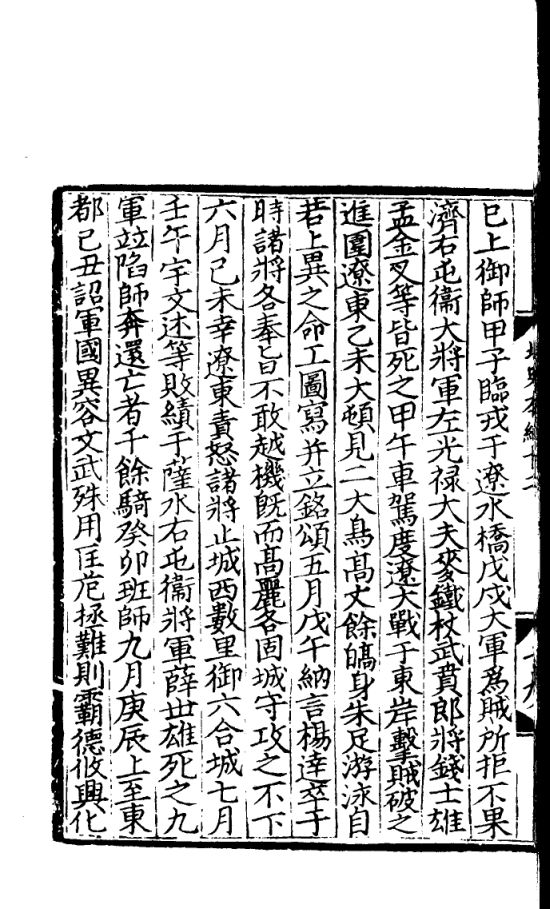 已上御師甲子臨戎于遼水橋戊戌大軍為賊所拒不果
濟右屯衞大將軍左光禄大夫麥鐵杖武賁郎將錢士雄
孟金叉等皆死之甲午車駕度遼大戰于東岸擊賊破之
進圍遼東乙未大頓見二大鳥髙丈餘皜身朱足游泳自
若上異之命工圖寫并立銘頌五月戊午納言楊達卒于
時諸將各奉旨不敢越機旣而髙麗各固城守攻之不下
六月己未幸遼東責怒諸將止城西數里御六合城七月
壬午宇文述等敗績于薩水右屯衞將軍薛世雄死之九
軍竝陷師奔還亡者千餘騎癸卯班師九月庚辰上至東
都己丑詔軍國異容文武殊用匡危拯難則霸德攸興化